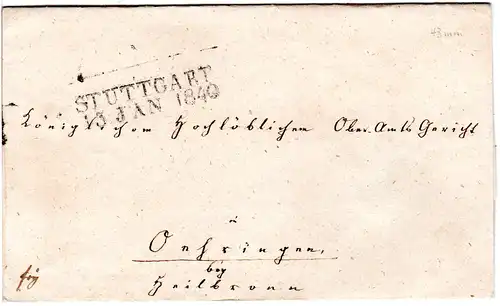 43 mm
STUTTGART
13 JAN 1840
Königlichem Hochlöblichen Ober-Amts Gericht
à
Oehringen,
bey
Heilbronn